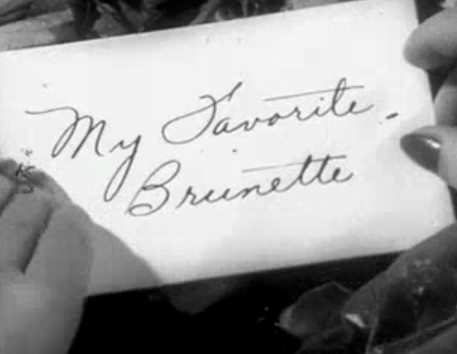 My Favorite
Brunette